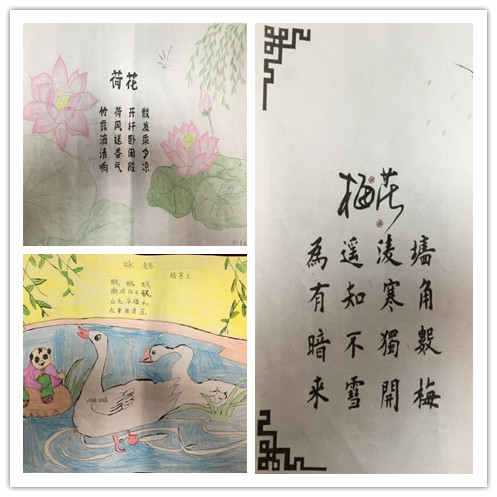 荷花
散发乘夕凉
开轩卧闲敞
荷风送香气
竹露滴清响
咏 鹅
骆宾王
鹅，鹅，鹅，
曲项向天歌
白毛浮绿水
红掌拨清波
梅花
墙角數梅
凌寒獨開
遥知不雪
為有暗来